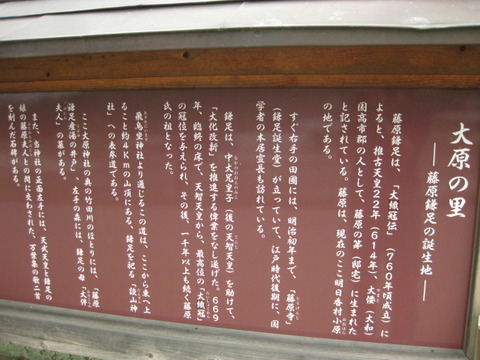 大原の里
―藤原鎌足の誕生地―
藤原鎌足は、「大織冠伝」(760年頃成立)に
よると、推古天皇22年(614年)、大倭(大和)
国高市郡の人として、藤原の第(邸宅)に生まれた
と記されている。藤原は、現在のここ明日香村小原
の地である。
すぐ右手の田圃には、明治初年まで、「藤原寺」
(鎌足誕生堂)が立っていて、江戸時代後期に、国
学者の本居宣長も訪れている。
鎌足は、中大兄皇子(後の天智天皇)を助けて、
「大化改新」を推進する偉業をなし遂げた。669
年、臨終の床で、天智天皇から、最高位の「大織冠」
の冠位を与えられ、その後、一千年以上も続く藤原
氏の祖となった。
飛鳥坐神社より通じるこの道は、ここから東へ上
ること約4Kmの山頂にある、鎌足を祀る「談山神
社」への表参道である。
ここ大原神社の奥の竹田川のほとりには、「藤原
鎌足産湯の井戸」、左手の森には、鎌足の母「大伴
夫人」の墓がある。
また、当神社の正面左手には、天武天皇と鎌足の
娘の藤原夫人との間に交わされた、万葉集の歌二首
を刻んだ石碑がある。